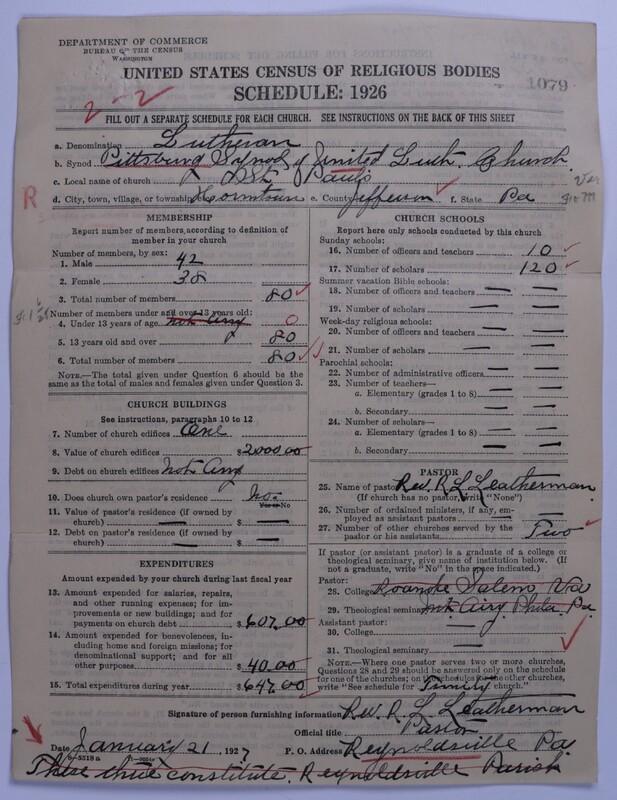 DEPARTMENT OF COMMERCE
BUREAU OF THE CENSUS
WASHINGTON
UNITED STATES CENSUS OF RELIGIOUS BODIES
SCHEDULE: 1926
1079
2-2
FILL OUT A SEPARATE SCHEDULE FOR EACH CHURCH. SEE INSTRUCTIONS ON THE BACK OF THIS SHEET
a. Denomination Lutheran
b. Synod Pittsburg Synod of United Luth. Church
c. Local name of church St. Pauls
d. City, town, village, or township e. County Jefferson f. State Pa
R
MEMBERSHIP
Report number of members, according to definition of member in your church
Number of members, by sex:
1. Male 42
2. Female 38
3. Total number of members 80
Number of members under and over 13 years old:
4. Under 13 years of age not any 0
5. 13 years old and over 80
6. Total number of members 80
NOTE.—The total given under Question 6 should be the same as the total of males and females given under Question 3.
CHURCH BUILDINGS
See instructions, paragraphs 10 to 12
7. Number of church edifices One
8. Value of church edifices $2000.00
9. Debt on church edifices not any
10. Does church own pastor's residence no.
Yes or No
11. Value of pastor's residence (if owned by church) — $ —
12. Debt on pastor's residence (if owned by church) — $ —
EXPENDITURES
Amount expended by your church during last fiscal year
13. Amount expended for salaries, repairs, and other running expenses; for improvements or new buildings; and for payments on church debt $607.00
14. Amount expended for benevolences, including home and foreign missions; for denominational support; and for all other purposes $40.00
15. Total expenditures during year $647.00
CHURCH SCHOOLS
Report here only schools conducted by this church
Sunday schools:
16. Number of officers and teachers 10
17. Number of scholars 120
Summer vacation Bible schools:
18. Number of officers and teachers —
19. Number of scholars —
Week-day religious schools:
20. Number of officers and teachers —
21. Number of scholars —
Parochial schools:
22. Number of administrative officers —
23. Number of teachers—
a. Elementary (grades 1 to 8) —
b. Secondary —
24. Number of scholars—
a. Elementary (grades 1 to 8) —
b. Secondary —
PASTOR
25. Name of pastor Rev. R. L. Leatherman
(If church has no pastor, write "None")
26. Number of ordained ministers, if any, employed as assistant pastors —
27. Number of other churches served by the pastor or his assistants Two
If pastor (or assistant pastor) is a graduate of a college or theological seminary, give name of institution below. (If not a graduate, write "No" in the space indicated.)
Pastor:
28. College Roanoke Salem Va
29. Theological seminary Mt Airy Phila. Pa.
Assistant pastor:
30. College —
31. Theological seminary —
NOTE.—Where one pastor serves two or more churches, Questions 28 and 29 should be answered only on the schedule for one of the churches; on the schedules for the other churches, write "See schedule for Trinity church."
Signature of person furnishing information Rev. R. L. Leatherman
Official title Pastor
Date January 21, 1927 P. O. Address Reynoldsville Pa.
These three constitute Reynoldsville Parish